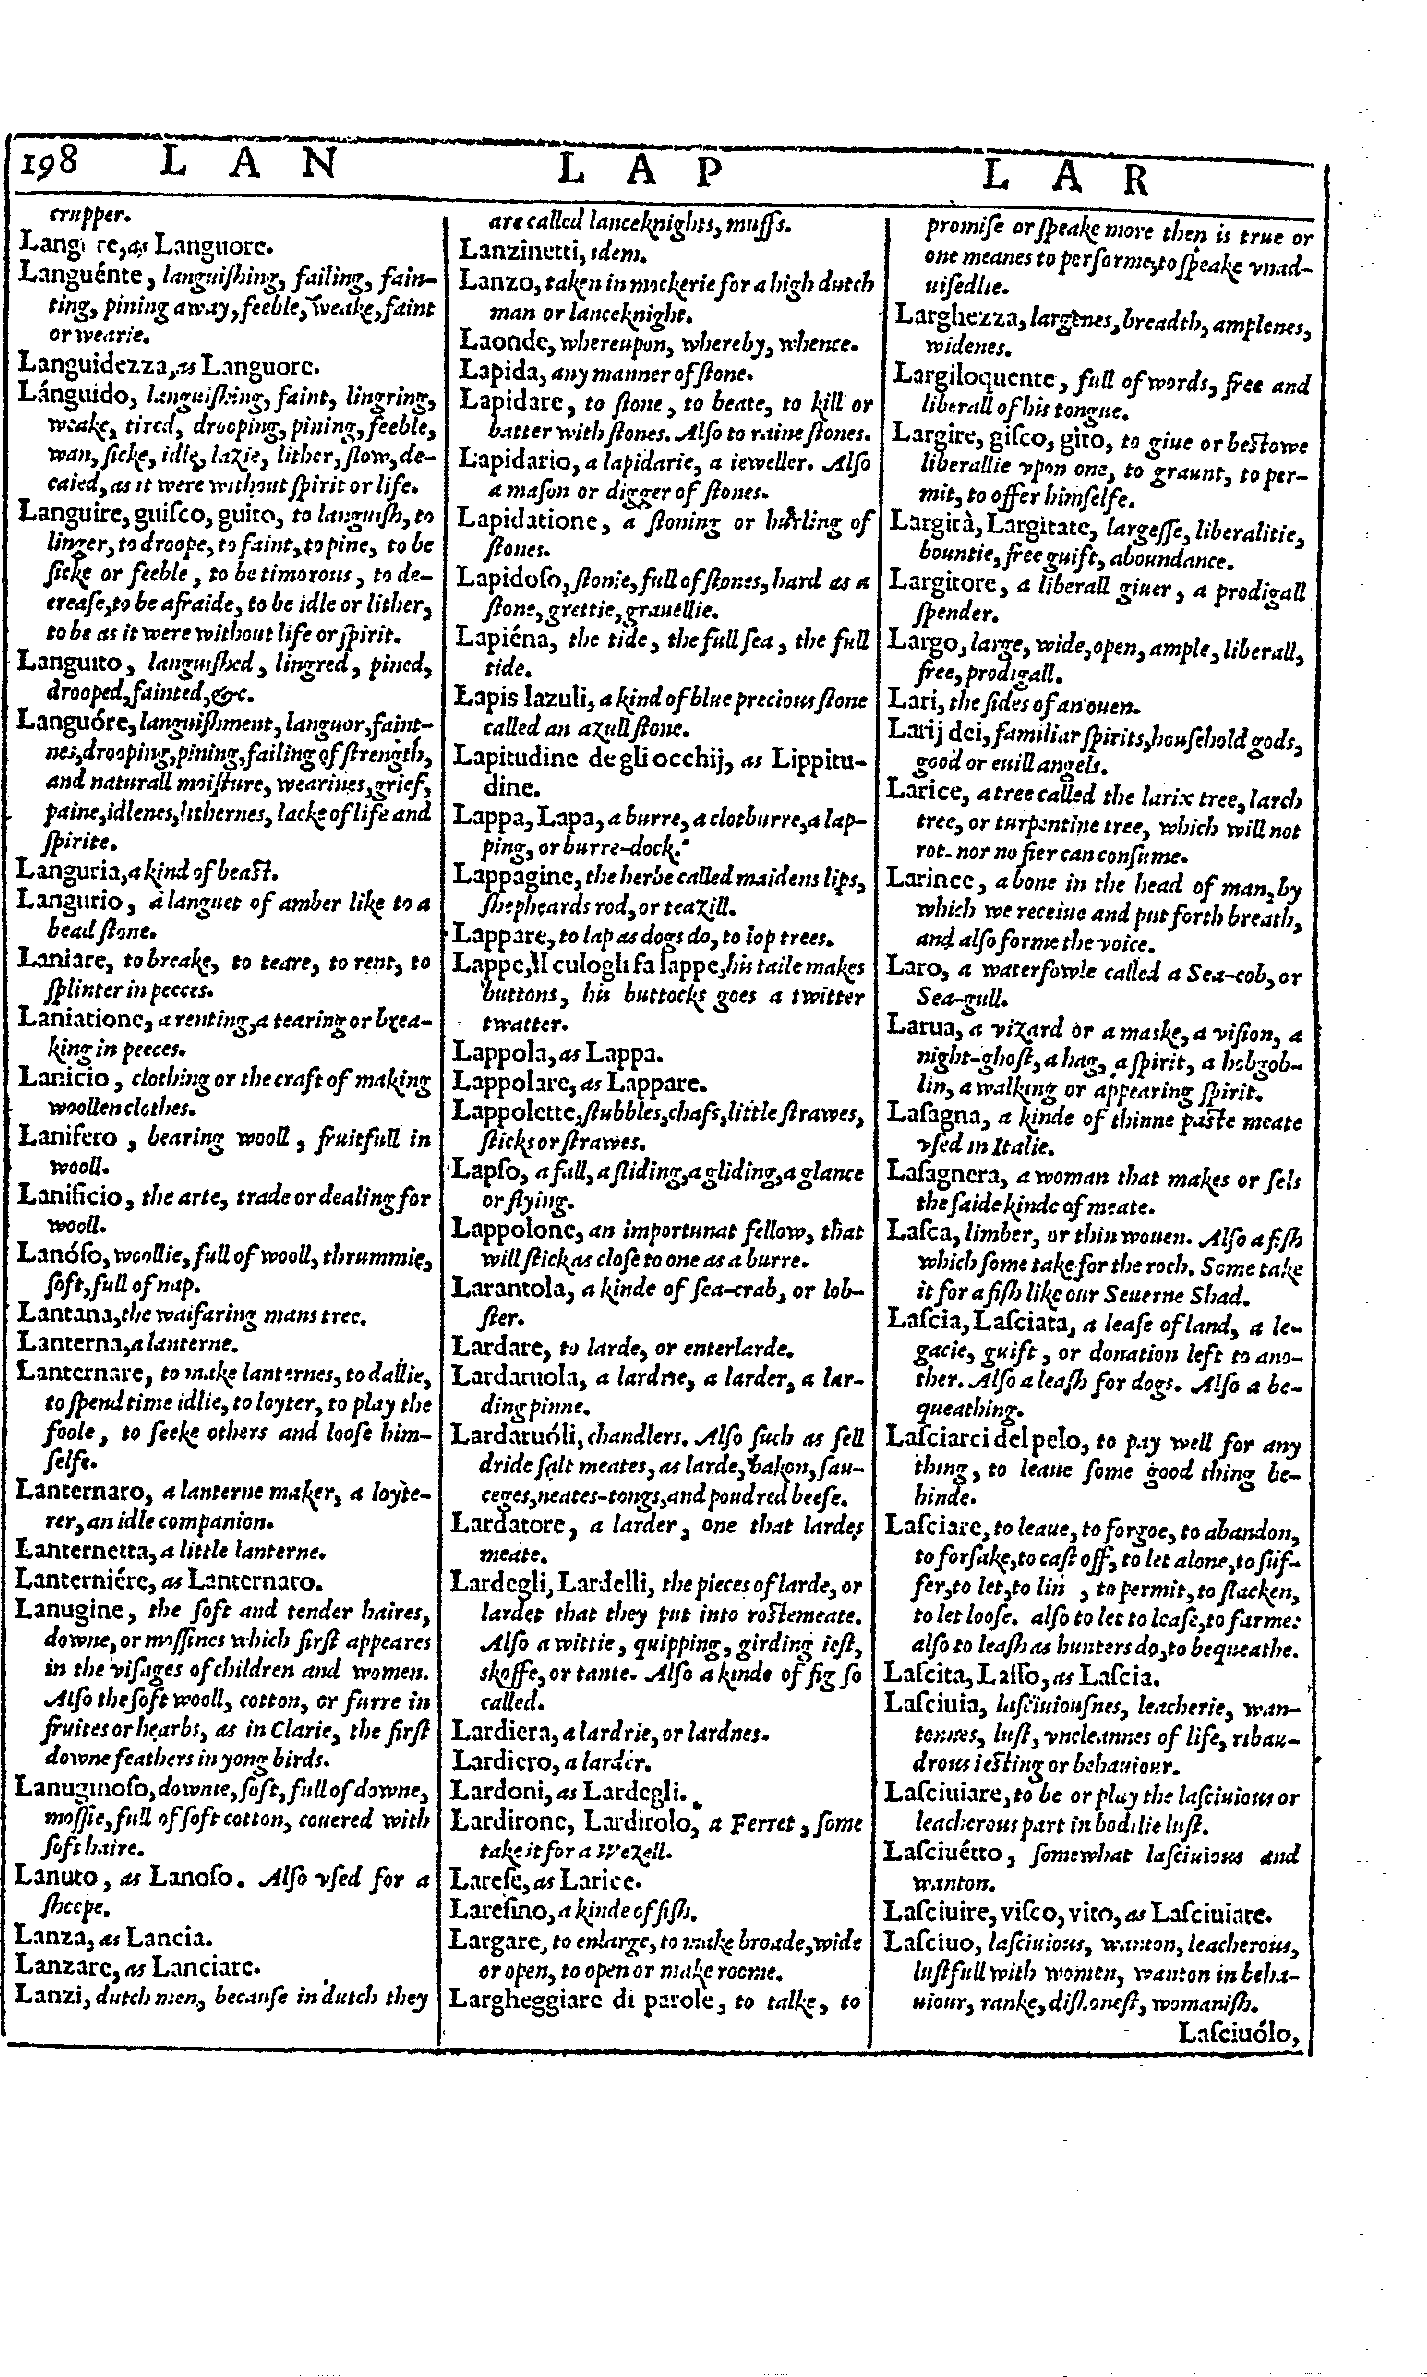 198 L A N L A P L A R
crupper.
Langi re, as Languore.
Languénte, languiſhing, failing, fain-
ting, pining away, feeble, weake, faint
or wearie.
Languidezza, as Languore.
Lánguido, languiſhing, faint, lingring,
weake, tired, drooping, pining, feeble,
wan, ſicke, idle, lazie, lither, ſlow, de-
caied, as it were without ſpirit or life.
Languire, guiſco, guito, to languiſh, to
linger, to droope, to faint, to pine, to be
ſicke or feeble, to be timorous, to de-
creaſe, to be afraide, to be idle or lither,
to be as it were without life or ſpirit.
Languito, languiſhed, lingred, pined,
drooped, fainted, &c.
Languóre, languiſhment, languor, faint-
nes, drooping, pining, failing of ſtrength,
and naturall moiſture, wearines, grief,
paine, idlenes, lithernes, lacke of life and
ſpirite.
Languria, a kind of beaſt.
Langurio, a languet of amber like to a
bead ſtone.
Laniare, to breake, to teare, to rent, to
ſplinter in peeces.
Laniatione, a renting, a tearing or brea-
king in peeces.
Lanicio, clothing or the craft of making
woollen clothes.
Lanifero, bearing wooll, fruitfull in
wooll.
Lanificio, the arte, trade or dealing for
wooll.
Lanóſo, woollie, full of wooll, thrummie,
ſoft, full of nap.
Lantana, the waifaring mans tree.
Lanterna, a lanterne.
Lanternare, to make lanternes, to dallie,
to ſpend time idlie, to loyter, to play the
foole, to ſeeke others and looſe him-
ſelfe.
Lanternaro, a lanterne maker, a loyte-
rer, an idle companion.
Lanternetta, a little lanterne.
Lanterniére, as Lanternaro.
Lanugine, the ſoft and tender haires,
downe, or moſſines which firſt appeares
in the viſages of children and women.
Alſo the ſoft wooll, cotton, or furre in
fruites or hearbs, as in Clarie, the firſt
downe feathers in yong birds.
Lanuginoſo, downie, ſoft, full of downe,
moſſie, full of ſoft cotton, couered with
ſoft haire.
Lanuto, as Lanoſo. Alſo vſed for a
ſheepe.
Lanza, as Lancia.
Lanzare, as Lanciare.
Lanzi, dutch men, becauſe in dutch they
are called lanceknights, muffs.
Lanzinetti, idem.
Lanzo, taken in mockerie for a high dutch
man or lanceknight.
Laonde, whereupon, whereby, whence.
Lapida, any manner of ſtone.
Lapidare, to ſtone, to beate, to kill or
batter with ſtones. Alſo to raine ſtones.
Lapidario, a lapidarie, a ieweller. Alſo
a maſon or digger of ſtones.
Lapidatione, a ſtoning or hurling of
ſtones.
Lapidoſo, ſtonie, full of ſtones, hard as a
ſtone, grettie, grauellie.
Lapiéna, the tide, the full ſea, the full
tide.
Lapis lazuli, a kind of blue precious ſtone
called an azull ſtone.
Lapitudine degli occhij, as Lippitu-
dine.
Lappa, Lapa, a burre, a clotburre, a lap-
ping, or burre-dock.
Lappagine, the herbe called maidens lips,
ſhepheards rod, or teazill.
Lappare, to lap as dogs do, to lop trees.
Lappe, Il culo gli fa lappe, his taile makes
buttons, his buttocks goes a twitter
twatter.
Lappola, as Lappa.
Lappolare, as Lappare.
Lappolette, ſtubbles, chaſs, little ſtrawes,
ſticks or ſtrawes.
Lapſo, a fall, a ſliding, a gliding, a glance
or flying.
Lappolone, an importunat fellow, that
will ſtick as cloſe to one as a burre.
Larantola, a kinde of ſea-crab, or lob-
ſter.
Lardare, to larde, or enterlarde.
Lardaruola, a lardrie, a larder, a lar-
ding pinne.
Lardaruóli, chandlers. Alſo ſuch as ſell
dride ſalt meates, as larde, bakon, ſau-
ceges, neates-tongs, and poudred beefe.
Lardatore, a larder, one that lardes
meate.
Lardegli, Lardelli, the pieces of larde, or
lardet that they put into roſtemeate.
Alſo a wittie, quipping, girding ieſt,
skoffe, or tante. Alſo a kinde of fig ſo
called.
Lardiera, a lardrie, or lardnes.
Lardiero, a larder.
Lardoni, as Lardegli.
Lardirone, Lardirolo, a Ferret, ſome
take it for a Wezell.
Lareſe, as Larice.
Lareſino, a kinde of fiſh.
Largare, to enlarge, to make broade, wide
or open, to open or make roome.
Largheggiare di parole, to talke, to
promiſe or ſpeake more then is true or
one meanes to performe, to ſpeake vnad-
uiſedlie.
Larghezza, largenes, breadth, amplenes,
widenes.
Largiloquente, full of words, free and
liberall of his tongue.
Largire, giſco, gito, to giue or beſtowe
liberallie vpon one, to graunt, to per-
mit, to offer himſelfe.
Largità, Largitate, largeſſe, liberalitie,
bountie, free guift, aboundance.
Largitore, a liberall giuer, a prodigall
ſpender.
Largo, large, wide, open, ample, liberall,
free, prodigall.
Lari, the ſides of an ouen.
Larij dei, familiar ſpirits, houſehold gods,
good or euill angels.
Larice, a tree called the larix tree, larch
tree, or turpentine tree, which will not
rot nor no fier can conſume.
Larince, a bone in the head of man, by
which we receiue and put forth breath,
and alſo forme the voice.
Laro, a waterfowle called a Sea-cob, or
Sea-gull.
Larua, a vizard or a maske, a viſion, a
night-ghoſt, a hag, a ſpirit, a hobgob-
lin, a walking or appearing ſpirit.
Laſagna, a kinde of thinne paſte meate
vſed in Italie.
Laſagnera, a woman that makes or ſels
the ſaide kinde of meate.
Laſca, limber, or thin wouen. Alſo a fiſh
which ſome take for the roch. Some take
it for a fiſh like our Seuerne Shad.
Laſcia, Laſciata, a leaſe of land, a le-
gacie, guift, or donation left to ano-
ther. Alſo a leaſh for dogs. Alſo a be-
queathing.
Laſciarci del pelo, to pay well for any
thing, to leaue ſome good thing be-
hinde.
Laſciare, to leaue, to forgoe, to abandon,
to forſake, to caſt off, to let alone, to ſuf-
fer, to let, to lin, to permit, to ſlacken,
to let looſe. alſo to let to leaſe, to farme:
alſo to leaſh as hunters do, to bequeathe.
Laſcita, Laſſo, as Laſcia.
Laſciuia, laſciuiouſnes, leacherie, wan-
tonnes, luſt, vncleannes of life, ribau-
drous ieſting or behauiour.
Laſciuiare, to be or play the laſciuious or
leacherous part in bodilie luſt.
Laſciuétto, ſomewhat laſciuious and
wanton.
Laſciuire, viſco, vito, as Laſciuiare.
Laſciuo, laſciuious, wanton, leacherous,
luſtfull with women, wanton in beha-
uiour, ranke, diſhoneſt, womaniſh.
Laſciuólo,